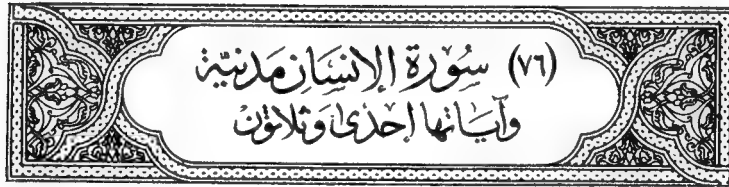 (٧٦) سُوْرَةِ الإنسَانِ مَدنيَّة
وَآيَاتِهَا إحْدى وَثلاثون